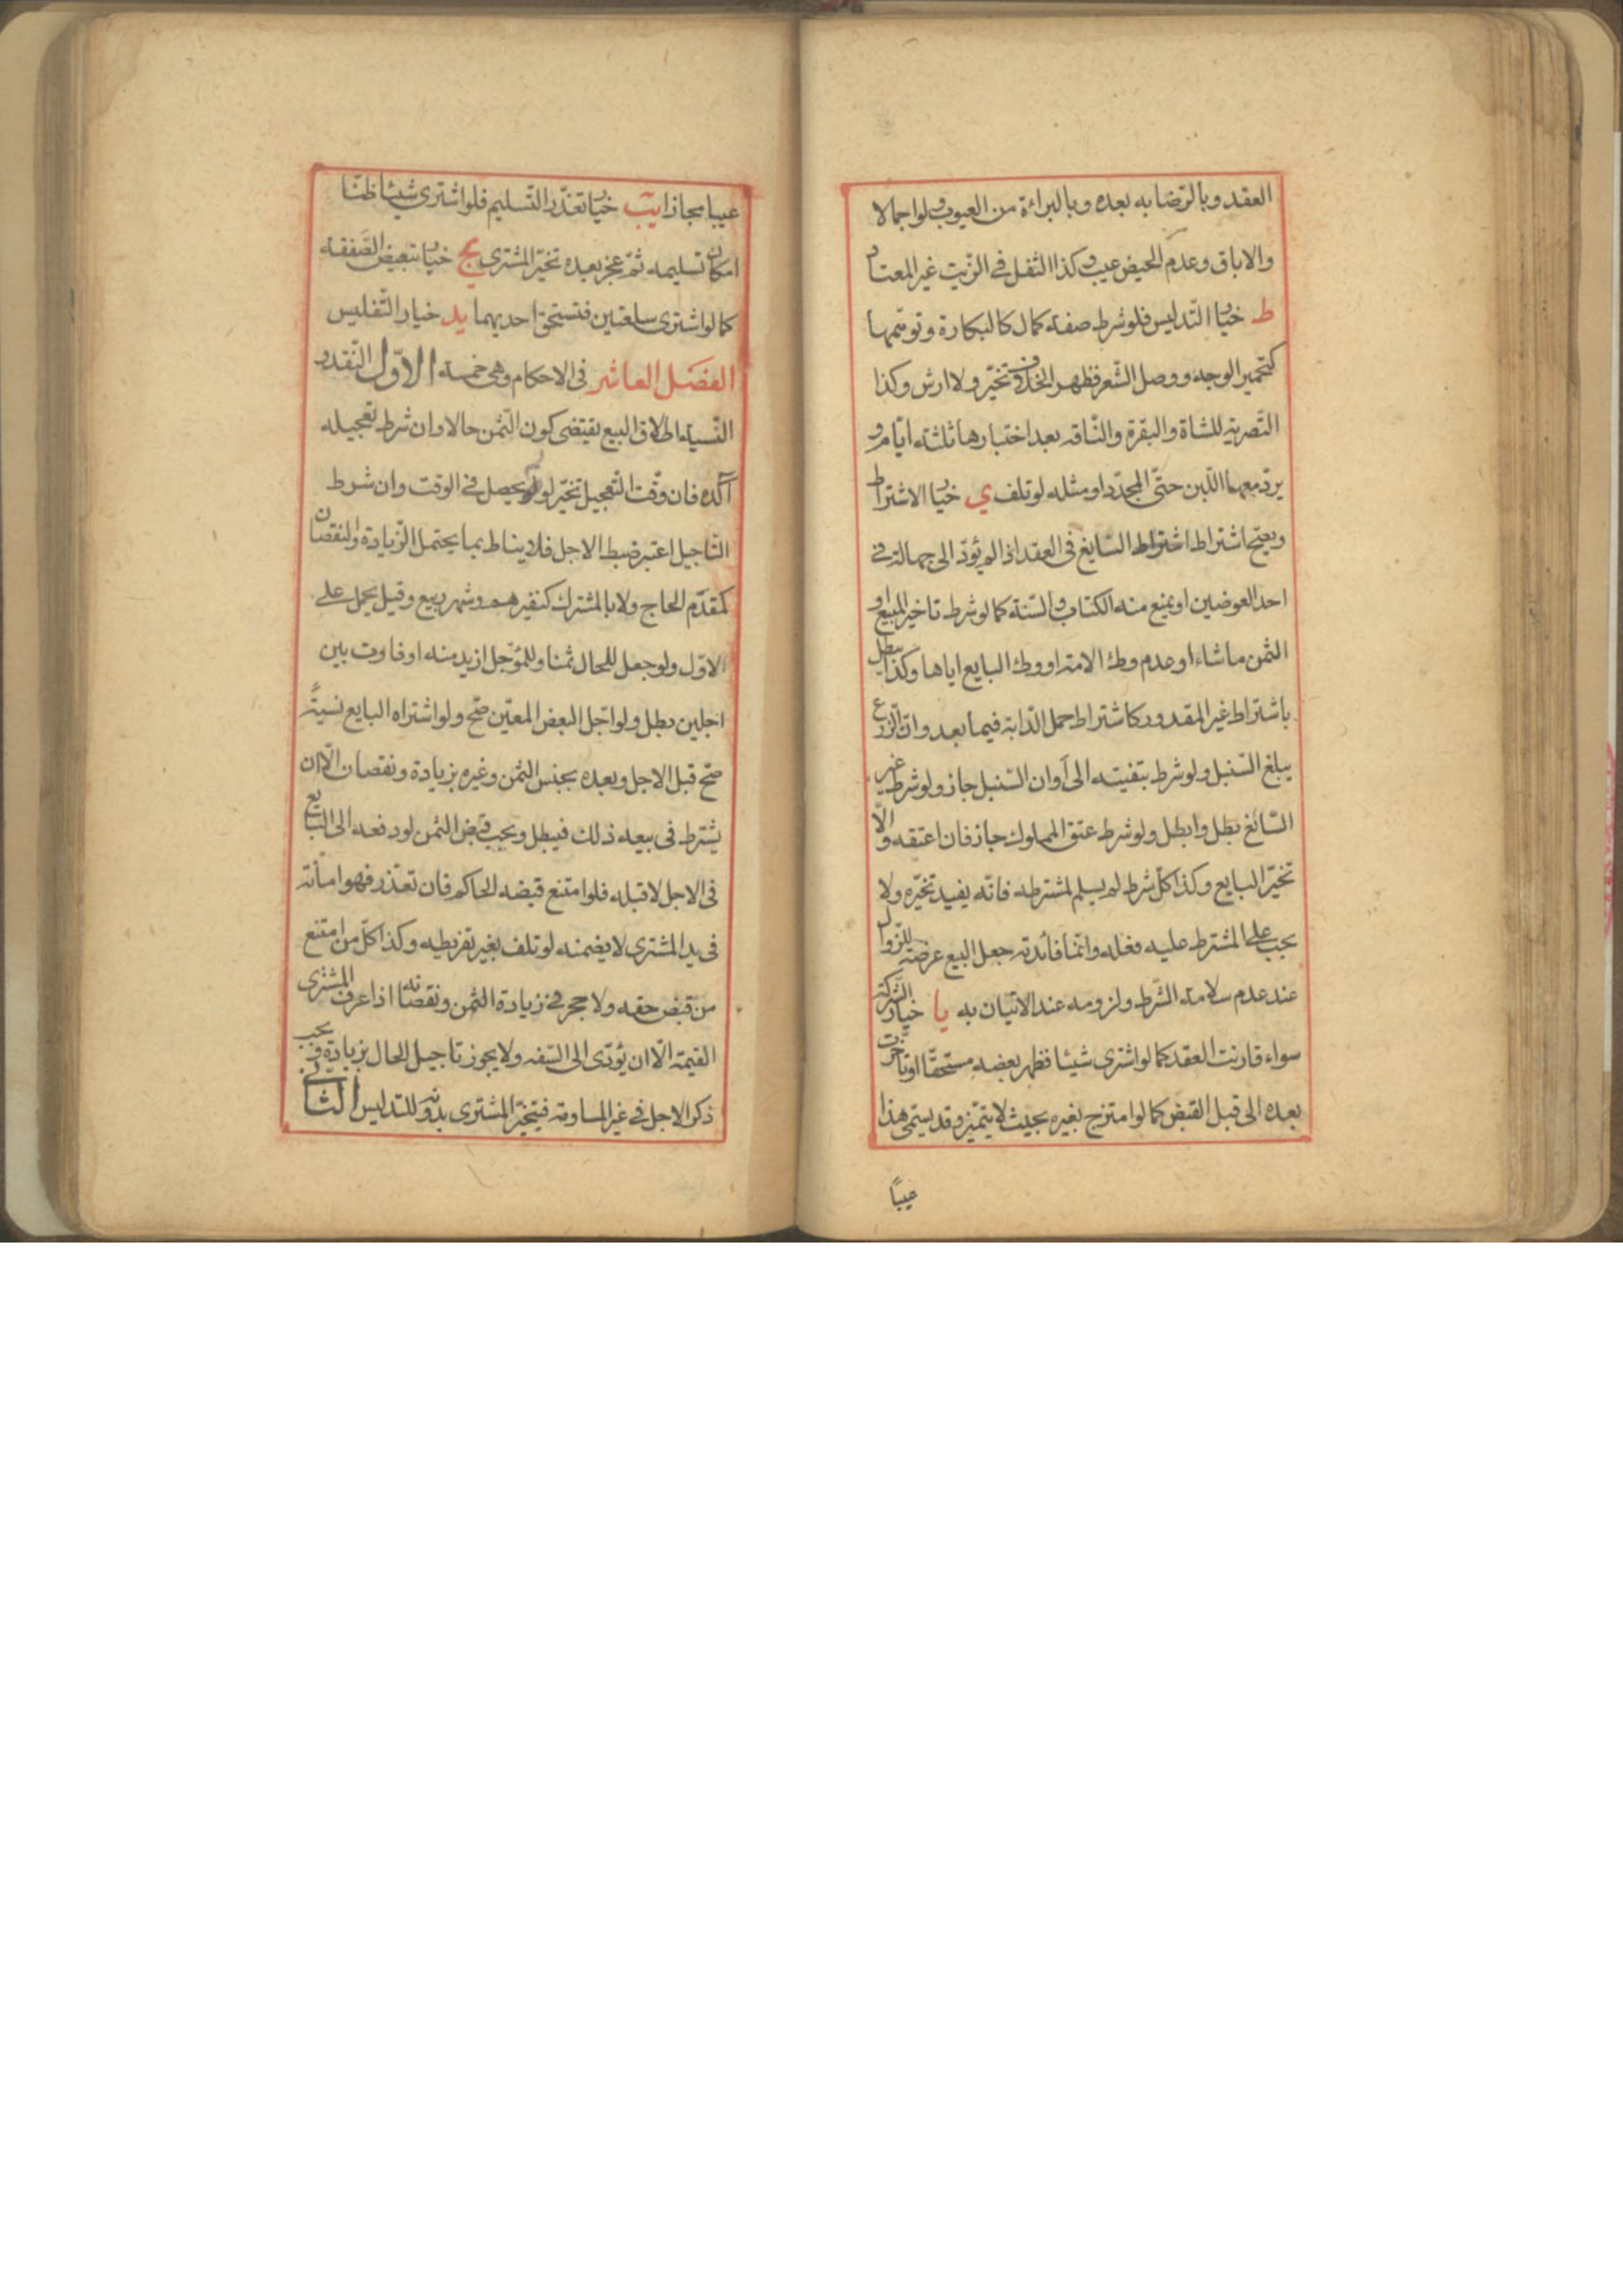 العقد وبالرّضا به بعده وبالبراءة من العيوب ولو اجمالا
والاباق وعدم الحيض عيب وكذا الثفل في الزّيت غير المعتاد
ط خيار التدليس فلو شرط صفة كمال كالبكارة وتوهّمها
كتحمير الوجه ووصل الشّعر فظهر الخلاف تخيّر ولا ارش وكذا
التّصرية للشاة والبقرة والنّاقه بعد اختبارها ثلثة ايّام و
يردّ معها اللّبن حتّى المجدّد او مثله لو تلف ي خيار الاشتراط
ويصحّ اشتراط اشتراط السّايغ في العقد اذا لم يؤدّ الى جهالة في
احد العوضين او يمنع منه الكتاب والسّنة كما لو شرط تاخير المبيع او
الثمن ما شاء او عدم وطئ الامة او وطئ البايع اياها وكذا يبطل
باشتراط غير المقدور كاشتراط حمل الدّابة فيما بعد وانّ الزّرع
يبلغ السّنبل ولو شرط بتقيته الى اوان السّنبل جاز ولو شرط غير
السّائغ بطل وابطل ولو شرط عتق المملوك جاز فان اعتقه والّا
تخيّر البايع وكذا كلّ شرط لم يسلم لمشترطه فانّه يفيد تخيّره ولا
يجب على المشترط عليه فعله وانّما فائدته جعل البيع عرضة للزّوال
عند عدم سلامة الشّرط ولزومه عند الاتيان به يا خيار الشّركة
سواء قارنت العقد كما لو اشترى شيئا فظهر بعضه مستحقّا او تاخّرت
بعده الى قبل القبض كما لو امتزج بغيره بحيث لا يتميّز وقد يسمّى هذا
عيبًا
عيبا مجازا يب خيار تعذّر التّسليم فلو اشترى شيئا ظنّا
امكان تسليمه ثمّ عجز بعده تخيّر المشترى يج خيار تبعيض الصّفقه
كما لو اشترى سلعتين فتستحق احديهما يد خيار التّفليس
الفصل العاشر فى الاحكام وهى خمسة الاوّل النّقد و
النّسية اطلاق البيع يقتضى كون الثّمن حالا وان شرط تعجيله
اكّده فان وقّت التعجيل تخيّر لو لم يحصل في الوقت وان شرط
التّاجيل اعتبر ضبط الاجل فلا يناط بما يحتمل الزّيادة والنقصان
كمقدّم الحاج ولا بالمشترك كنفيرهم وشهر ربيع وقيل يحمل على
الاوّل ولو جعل للحال ثمنا وللمؤجل ازيد منه او فاوت بين
اجلين بطل ولو اجّل البعض المعيّن صحّ ولو اشتراه البايع نسيةً
صحّ قبل الاجل وبعده بجنس الثمن وغيره بزيادة ونقصان الّا ان
يشترط فى بيعه ذلك فيبطل ويجب قبض الثمن لو دفعه الى البايع
فى الاجل لا قبله فلو امتنع قبضه الحاكم فان تعذر فهو امانة
فى يد المشترى لا يضمنه لو تلف بغير تفريطه وكذا كلّ من امتنع
من قبض حقه ولا حجر في زيادة الثمن ونقصانه اذا عرف المشترى
القيمة الّا ان يؤدّى الى السّفه ولا يجوز تاجيل الحال بزيادة فيه يجب
ذكر الاجل في غير المساومة فيتخيّر المشترى بدونه للتدليس الثانى